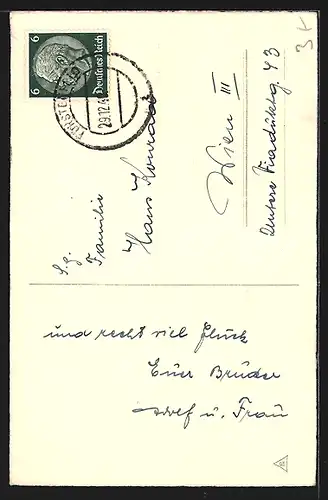 3 t
6
Deutsches Reich
6
FÜRSTENFELD
29.12.4
S. g.
Familie
Hans Konrad
Wien III
Untere Viaduktg 43
und recht viel Glück
Euer Bruder
Adolf u. Frau